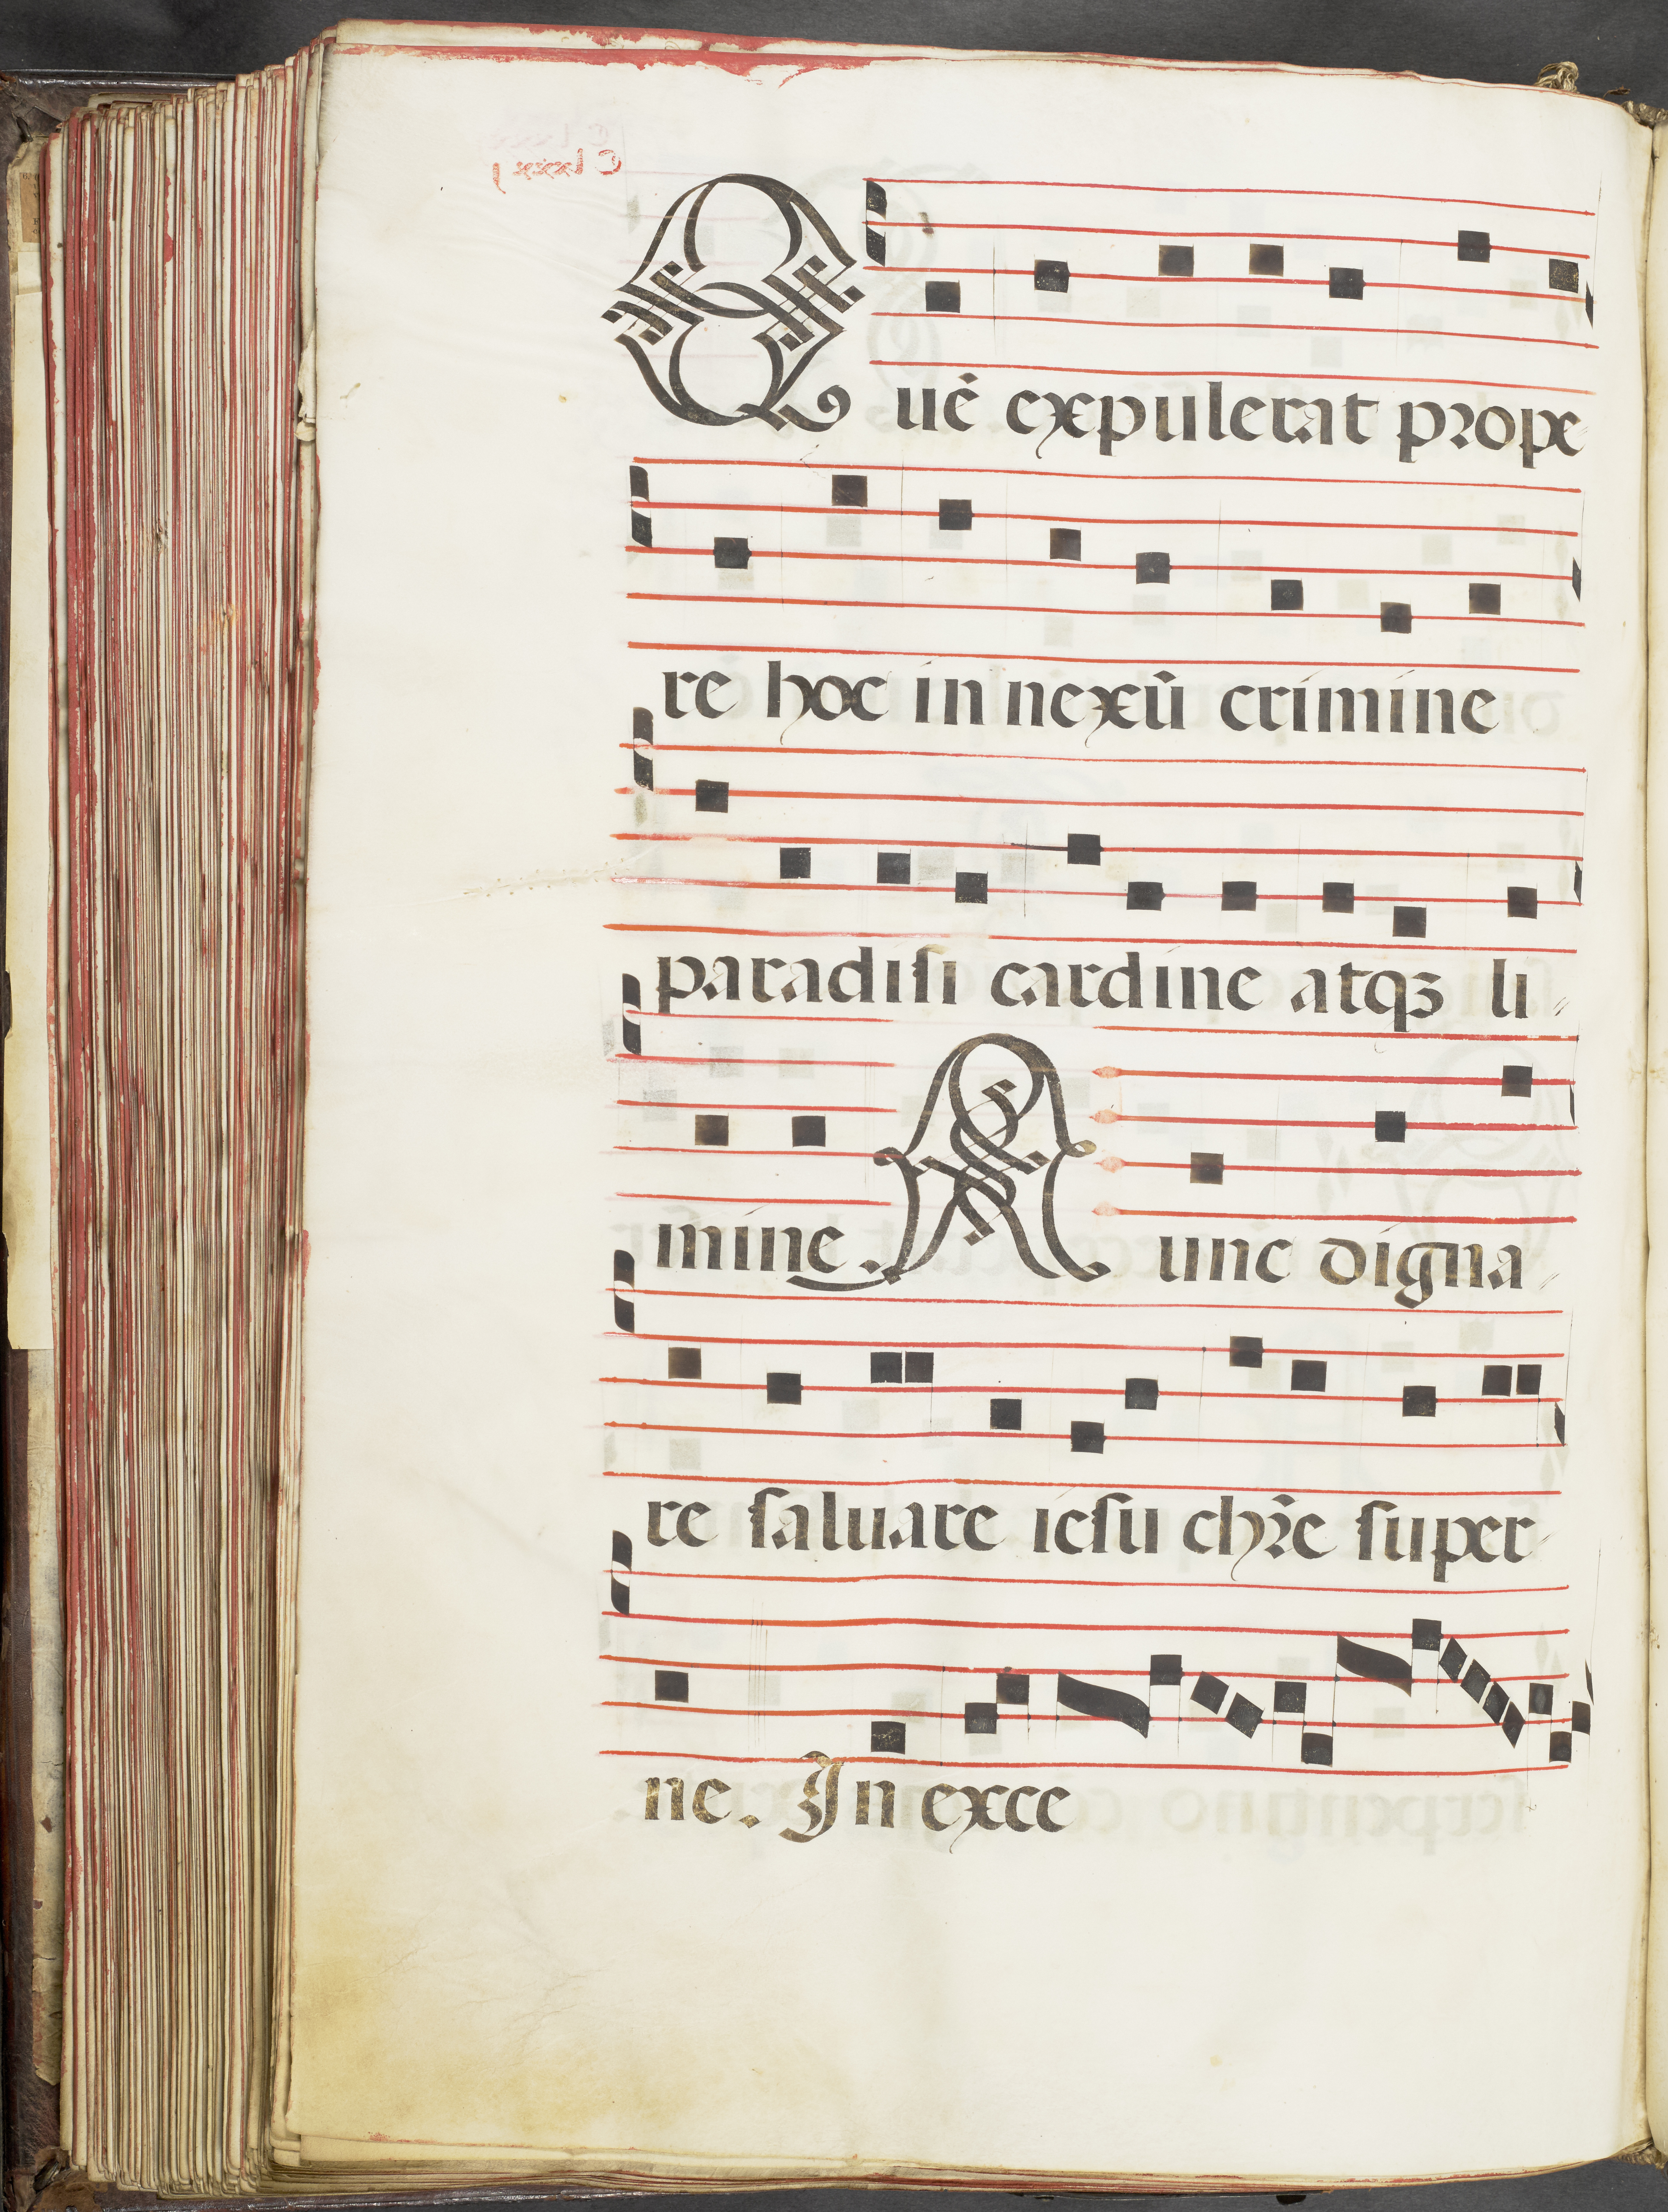 Quē expulerat prope
re hoc in nexū crimine
paradiſi cardine atqꝫ li〃
mine. Nunc digna〃
re ſaluare ieſu chr̄e ſuper-
ne. In exce